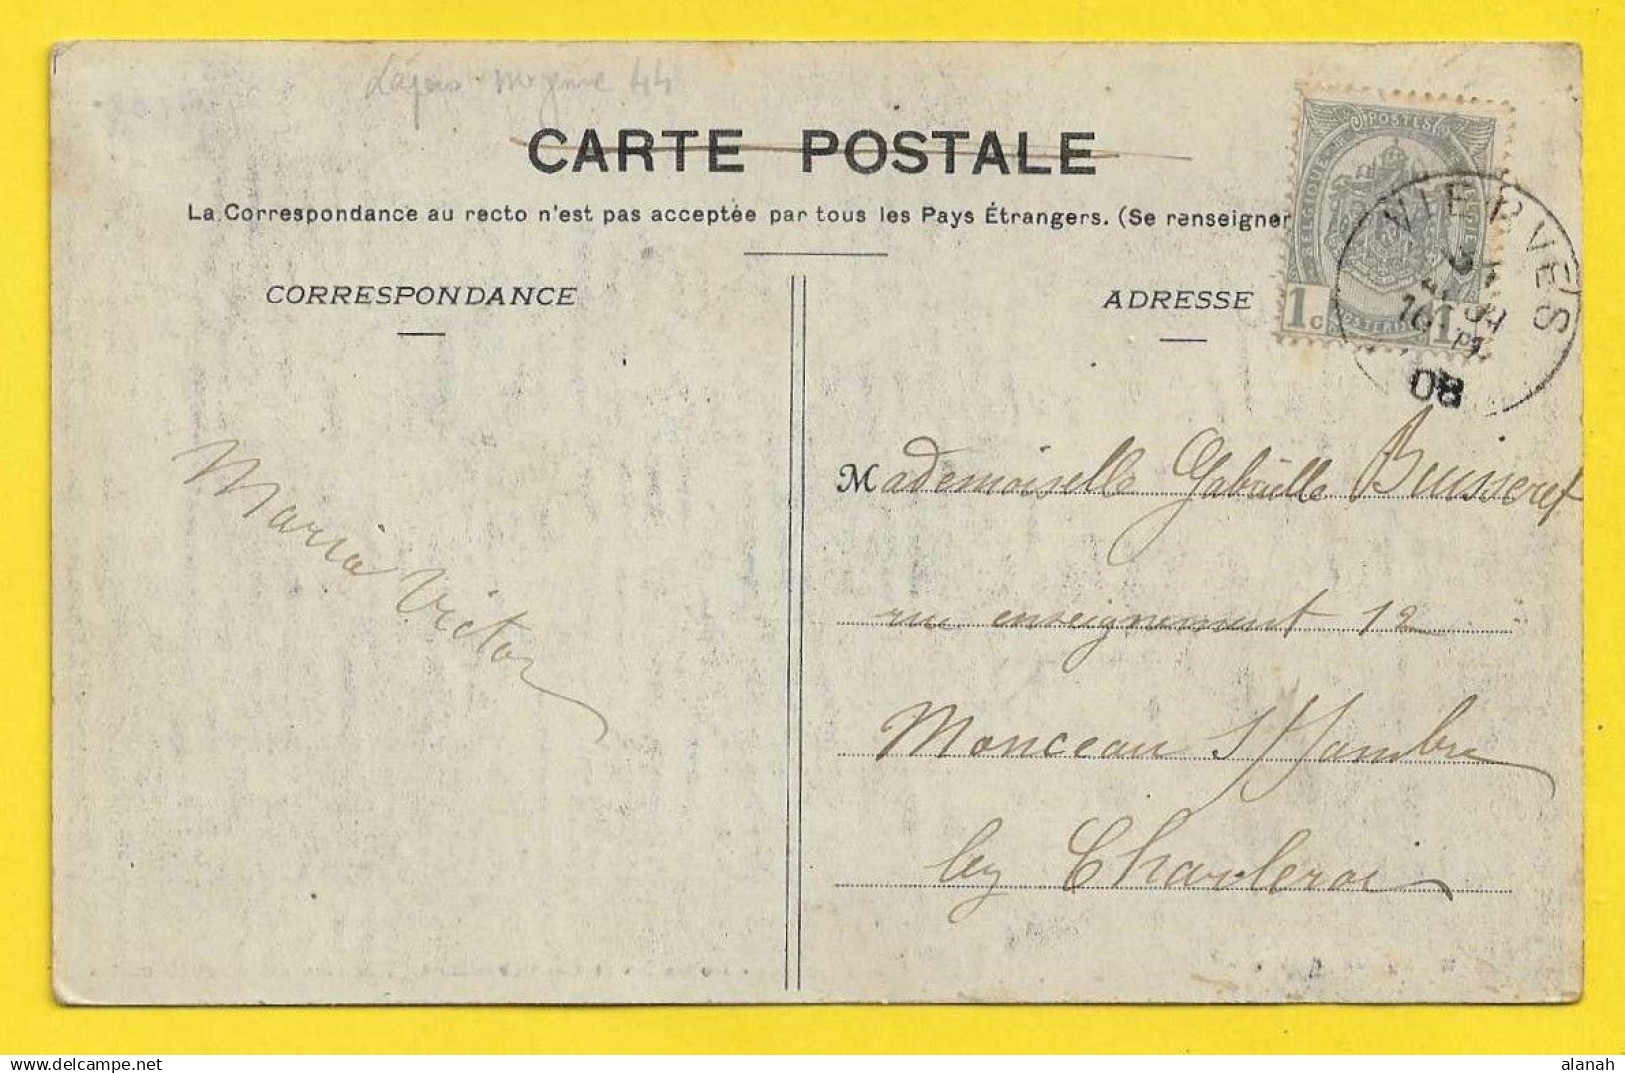 44
CARTE POSTALE
La Correspondance au recto n'est pas acceptée par tous les Pays Étrangers. (Se renseigner
CORRESPONDANCE
ADRESSE
POSTES
BELGIQUE
1c
1
VIERVES
08
Mademoiselle Gabrielle Buisseret
rue enseignement 12
Monceau s/Sambre
lez Charleroi
Maria Victor
alanah